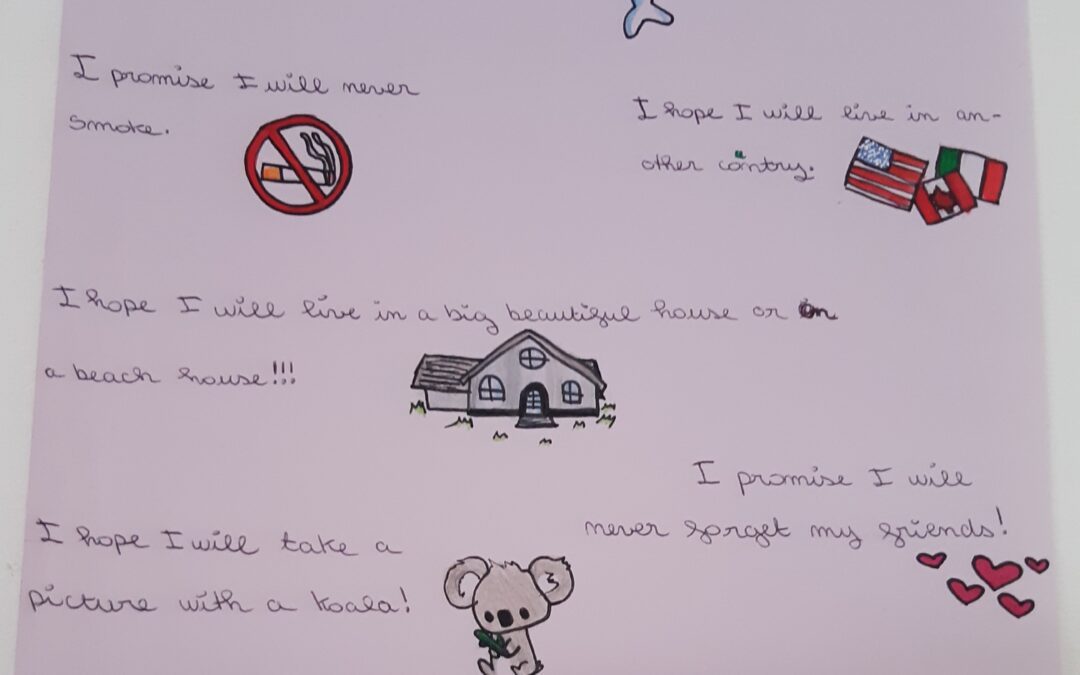 I promise I will never
smoke.
I hope I will live in an-
other country.
I hope I will live in a big beautiful house or in
a beach house!!!
I promise I will
never forget my friends!
I hope I will take a
picture with a koala!